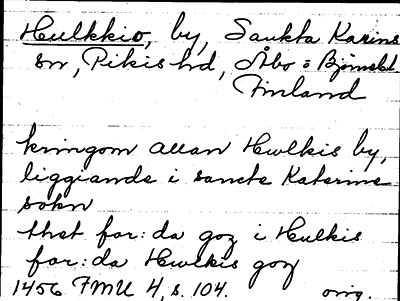 Hulkkio, by, Sankta Karins
sn, Pikis hd, Åbo o Björneb.l.
Finland
kringom allan Hwlkis by,
liggiande i sancte Katerine
sokn
thet for:da goz i Hulkis
for:da Hwlkis goz
1456 FMU 4, s. 104. orig.